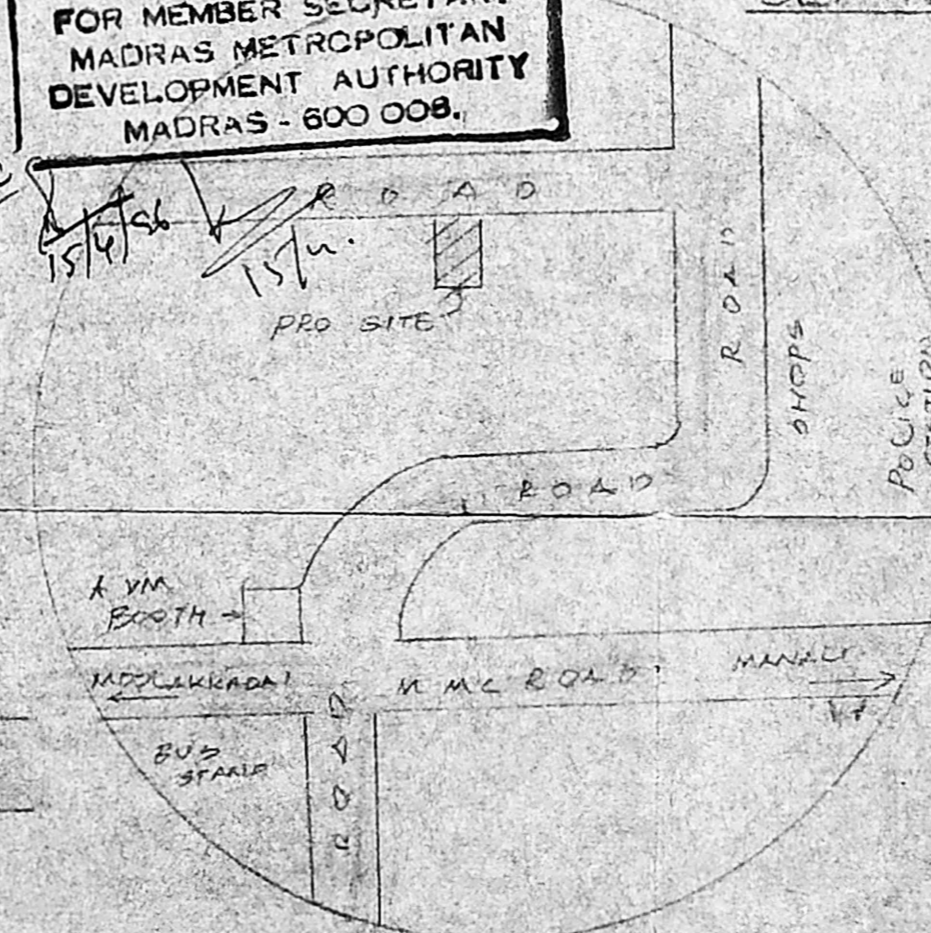 FOR MEMBER SECRETARY
MADRAS METROPOLITAN
DEVELOPMENT AUTHORITY
MADRAS - 600 008.
15/4/86
15/4.
ROAD
PRO SITE
ROAD
SHOPS
POLICE
ROAD
A VM
BOOTH
MOOLAKKADAI
M M C ROAD
MANALI
BUS
STAND
ROAD